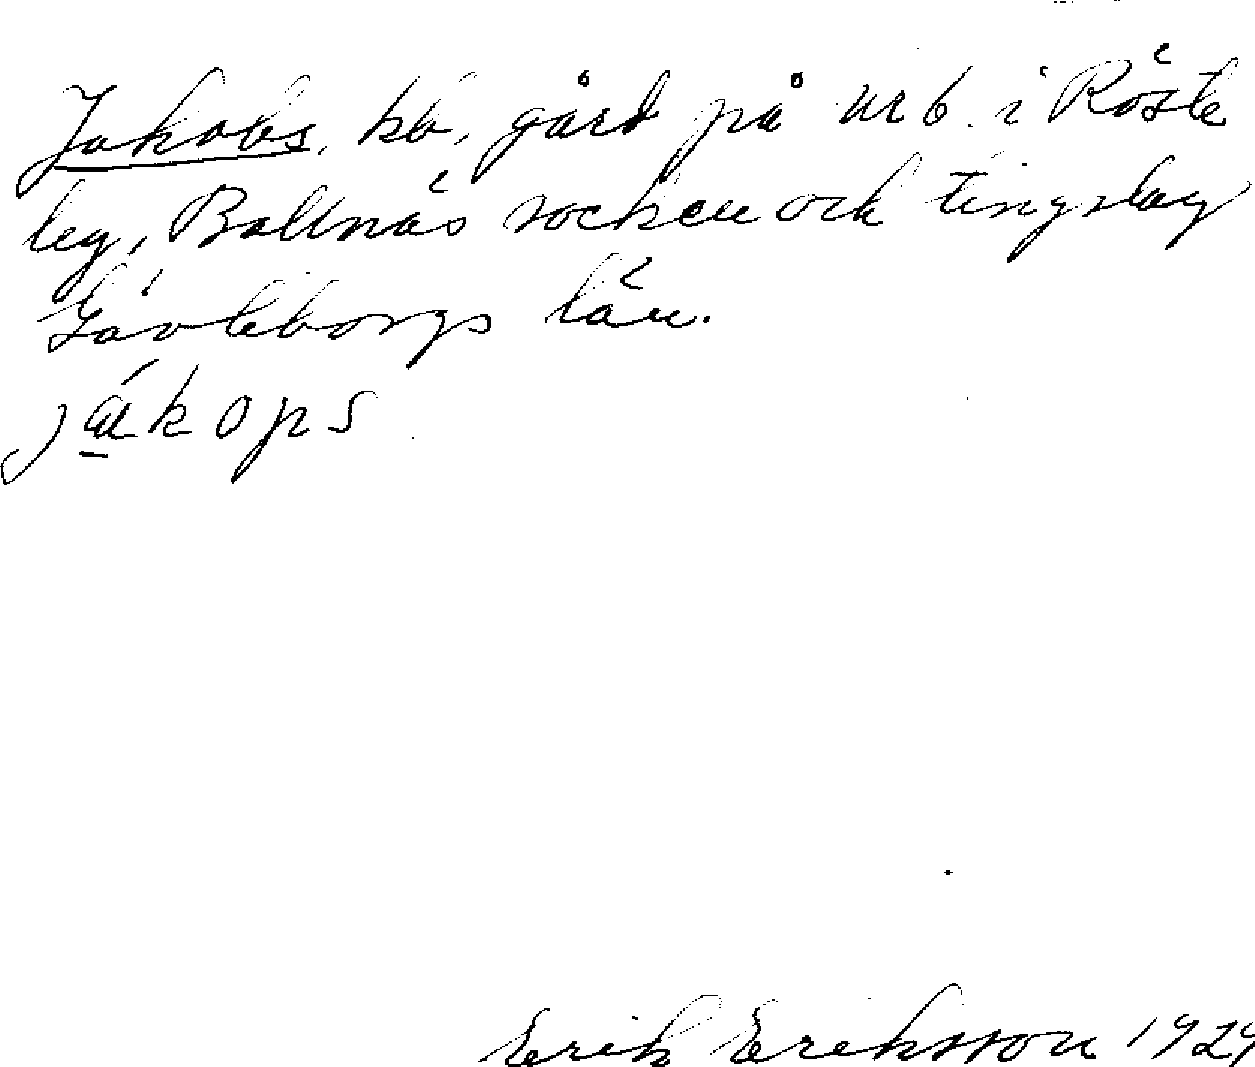 Jakobs, kb, gård på nr 6 i Röste
by, Bollnäs socken och tingslag
Gävleborgs län.
jákops
Erik Eriksson 1929